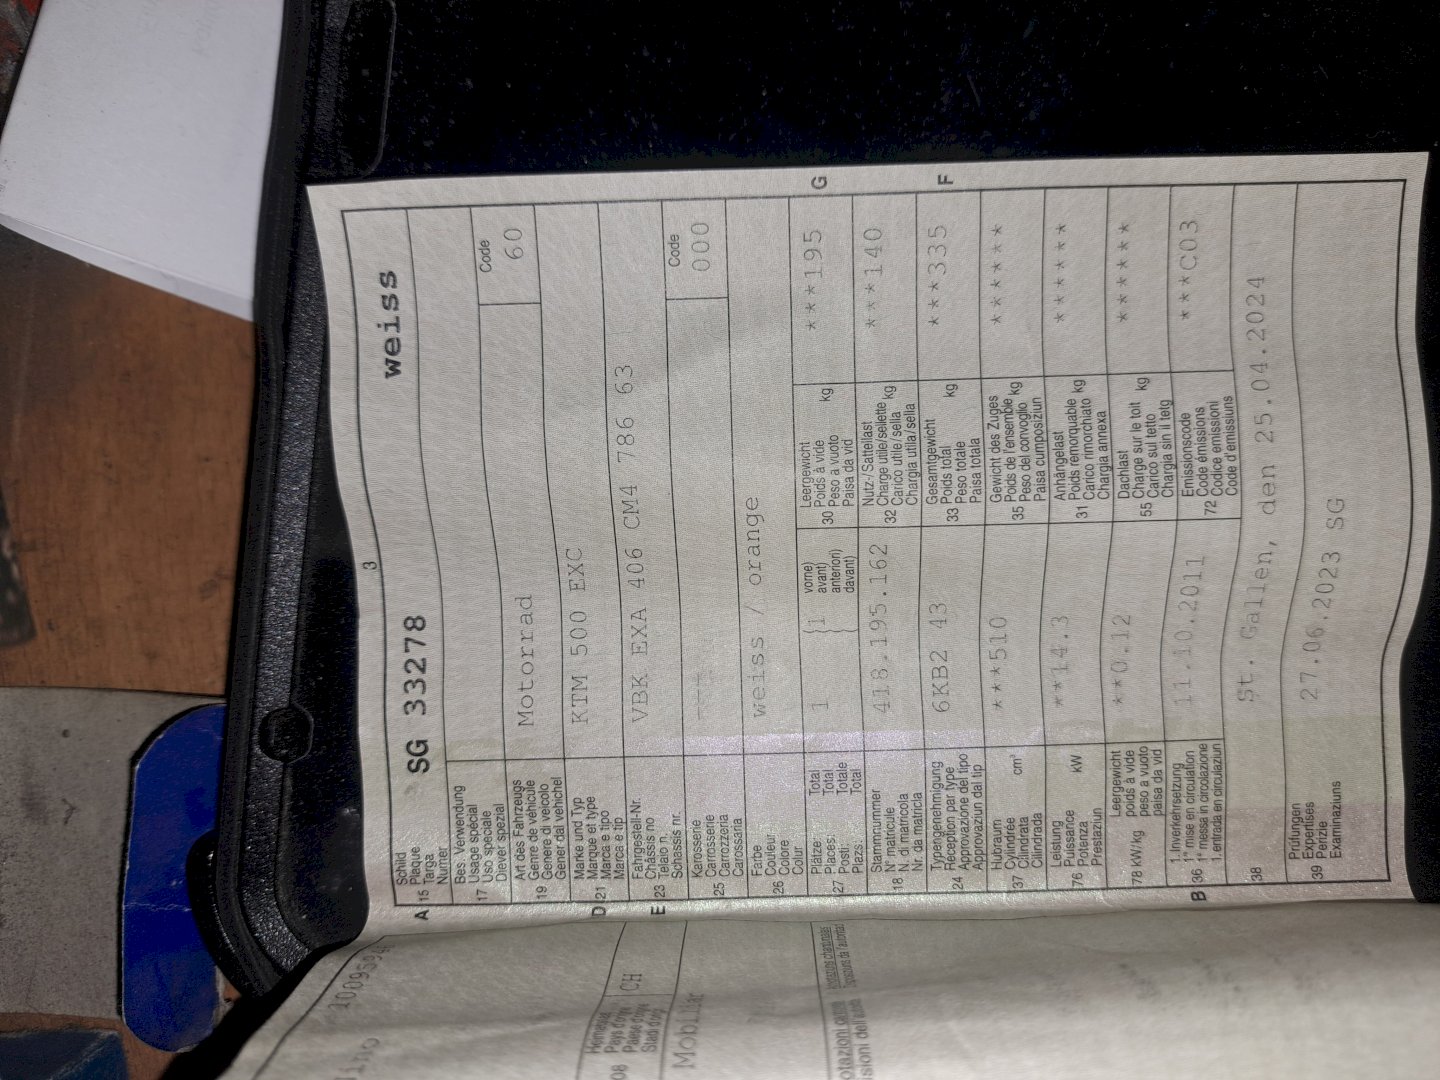 3
A 15 Schild
Plaque
Targa
Numer
SG 33278
weiss
17 Bes. Verwendung
Usage spécial
Uso speciale
Diever spezial
19 Art des Fahrzeugs
Genre de véhicule
Genere di veicolo
Gener dal vehichel
Motorrad
Code
60
D 21 Marke und Typ
Marque et type
Marca e tipo
Marca e tip
KTM 500 EXC
E 23 Fahrgestell-Nr.
Châssis no
Telaio n.
Schassis nr.
VBK EXA 406 CM4 786 63
25 Karosserie
Carrosserie
Carrozzeria
Carossaria
---
Code
000
26 Farbe
Couleur
Colore
Colur
weiss / orange
27 Plätze: Total
Places: Total
Posti: Totale
Plazs: Total
1
{1
vorne)
avant)
anteriori)
davant)
30 Leergewicht
Poids à vide kg
Peso a vuoto
Paisa da vid
***195
G
18 Stammnummer
N° matricule
N. di matricola
Nr. da matricla
418.195.162
32 Nutz-/Sattellast
Charge utile/sellette kg
Carico utile/sella
Chargia utila/sella
***140
24 Typengenehmigung
Réception par type
Approvazione del tipo
Approvaziun dal tip
6KB2 43
33 Gesamtgewicht
Poids total kg
Peso totale
Paisa totala
***335
F
37 Hubraum
Cylindrée cm³
Cilindrata
Cilindrada
***510
35 Gewicht des Zuges
Poids de l'ensemble kg
Peso del convoglio
Paisa cumposiziun
******
76 Leistung
Puissance kW
Potenza
Prestaziun
**14.3
31 Anhängelast
Poids remorquable kg
Carico rimorchiato
Chargia annexa
******
78 kW/kg Leergewicht
poids à vide
peso a vuoto
paisa da vid
**0.12
55 Dachlast
Charge sur le toit kg
Carico sul tetto
Chargia sin il tetg
******
B 36 1. Inverkehrsetzung
1re mise en circulation
1a messa in circolazione
1. entrada en circulaziun
11.10.2011
72 Emissionscode
Code émissions
Codice emissioni
Code d'emissiuns
***C03
38
St. Gallen, den 25.04.2024
39 Prüfungen
Expertises
Perizie
Examinaziuns
27.06.2023 SG
08 Heimatstaat
CH
Mobiliar